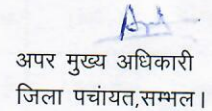 अपर मुख्य अधिकारी
जिला पचांयत,सम्भल।